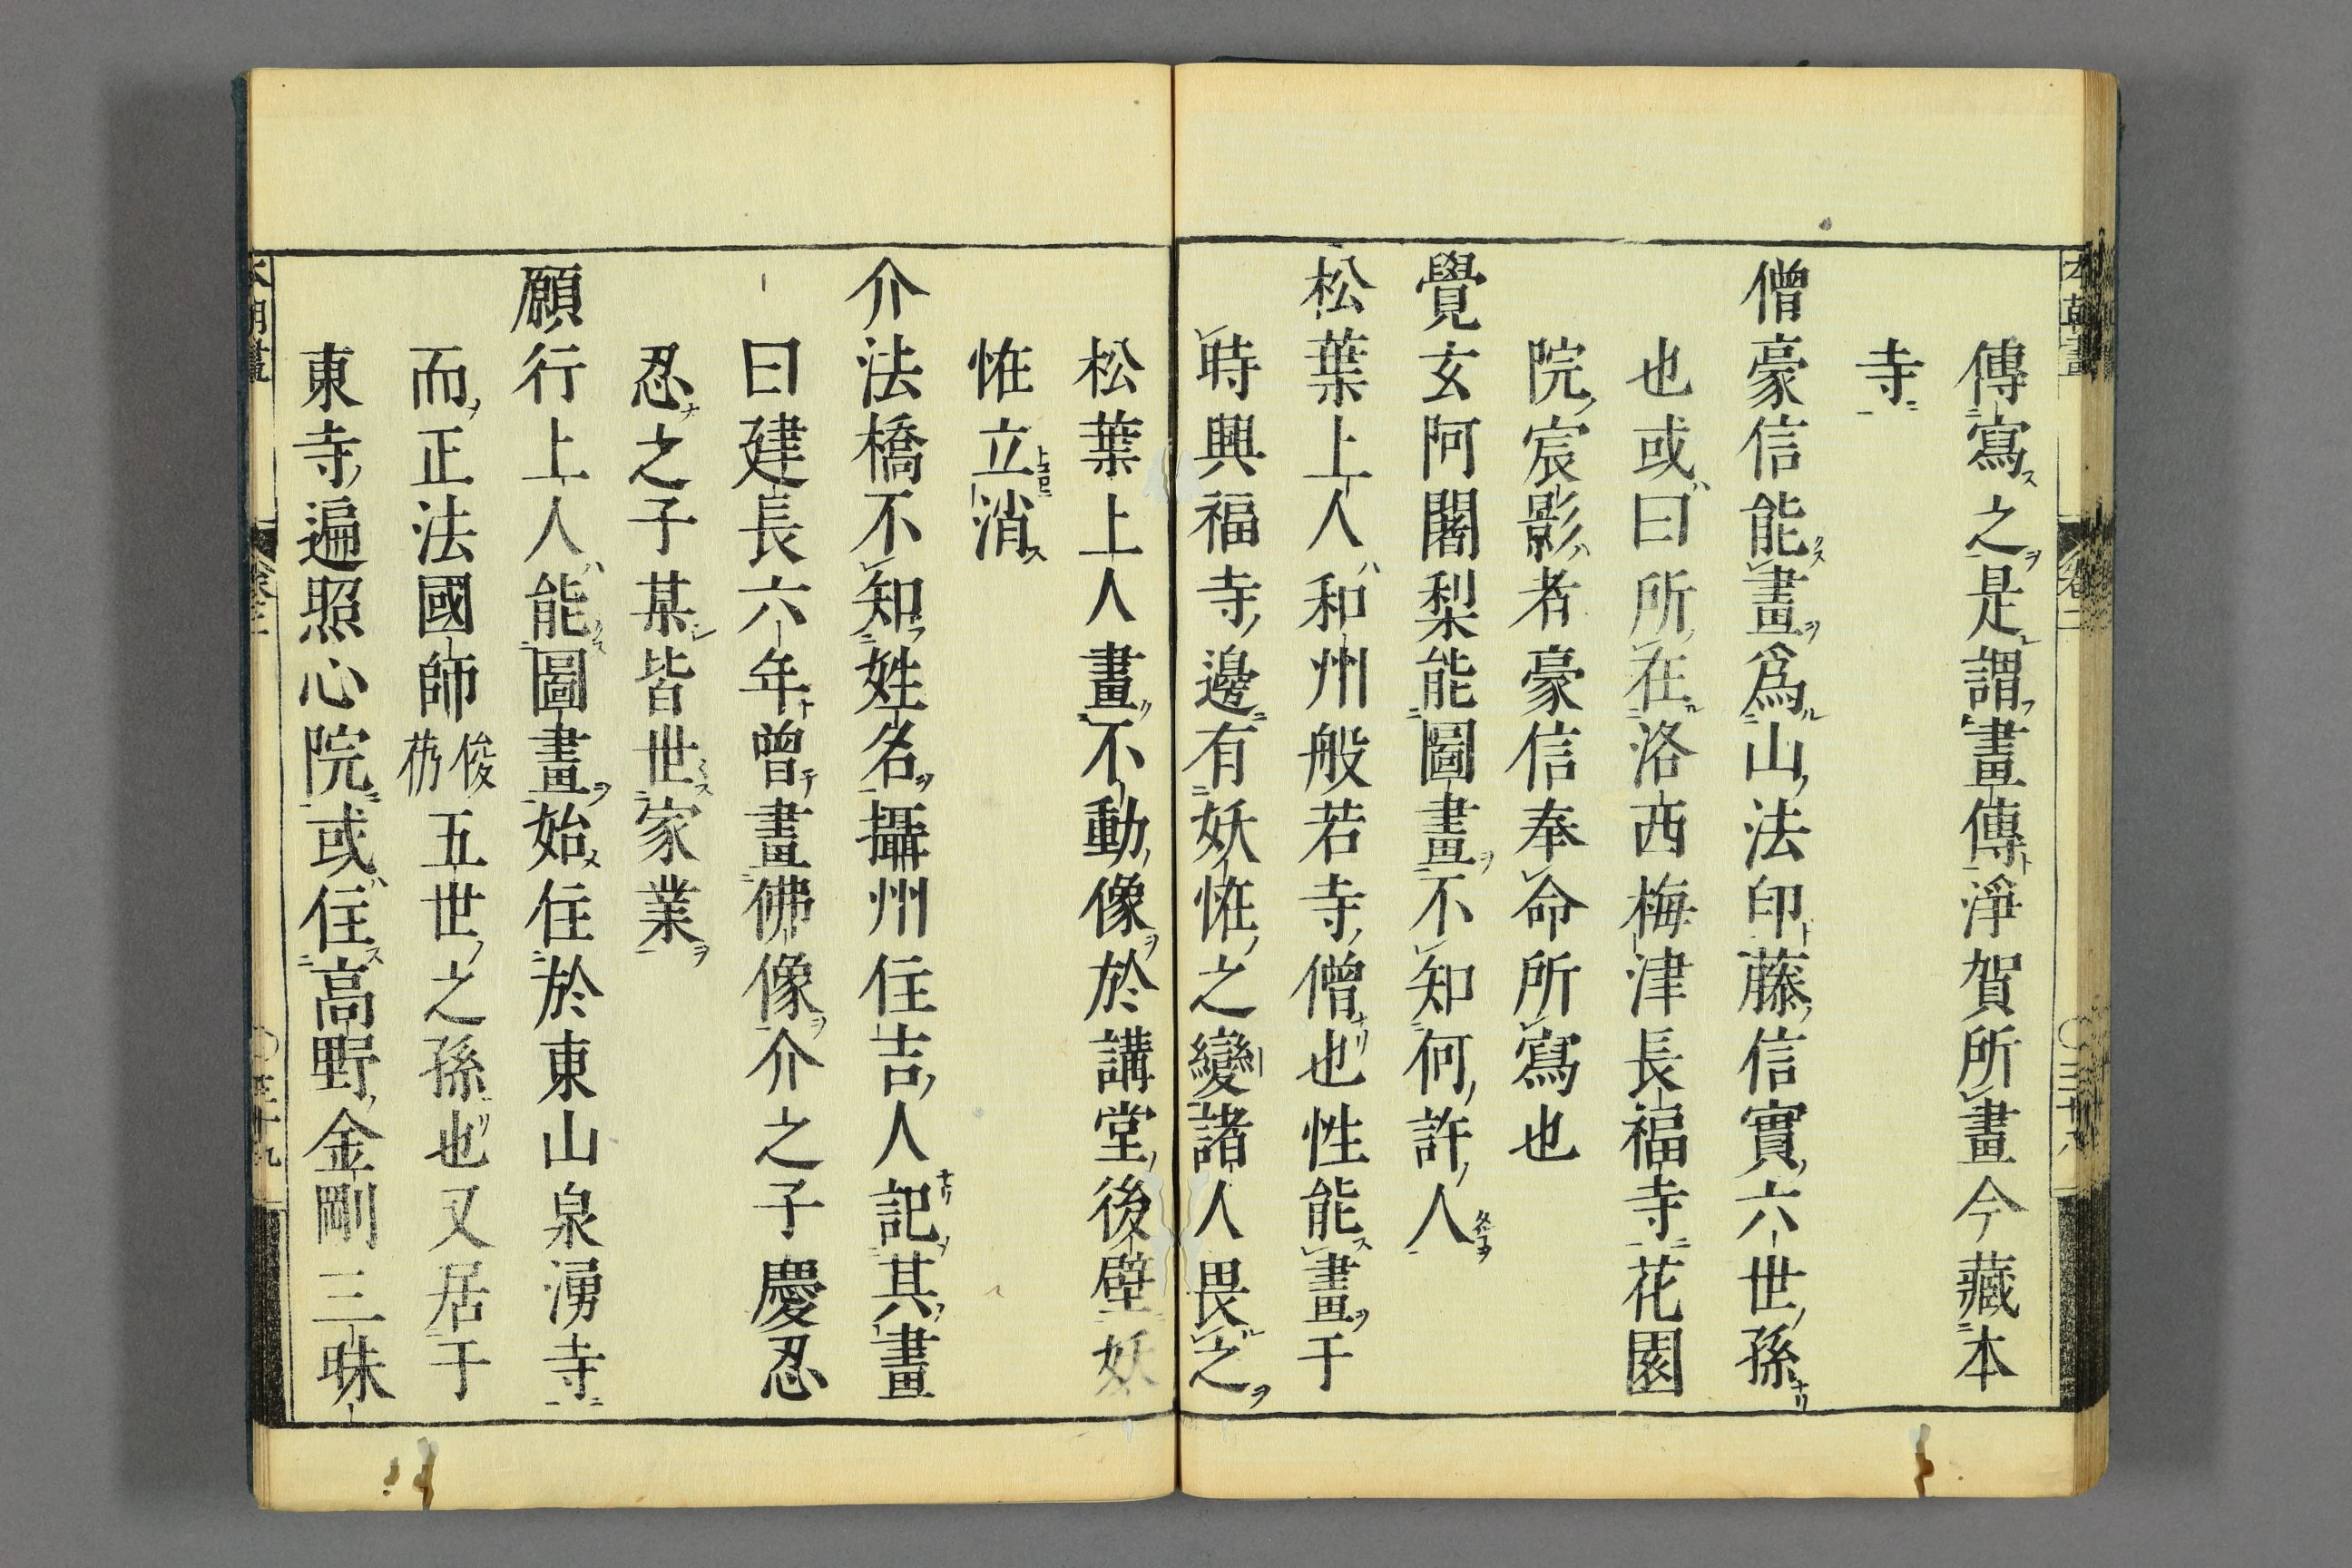 傳寫之是謂畫傳淨賀所畫今藏本
寺
僧豪信能畫爲山法印藤信實六世孫
也或曰所在洛西梅津長福寺花園
院宸影者豪信奉命所寫也
覺玄阿闍梨能圖畫不知何許人
松葉上人和州般若寺僧也性能畫于
時興福寺邊有妖恠之變諸人畏之
松葉上人畫不動像於講堂後壁妖
恠立消
介法橋不知姓名攝州住吉人記其畫
曰建長六年曾畫佛像介之子慶忍
忍之子某皆世家業
願行上人能圖畫始住於東山泉湧寺
而正法國師俊芿五世之孫也又居于
東寺遍照心院或住高野金剛三昧